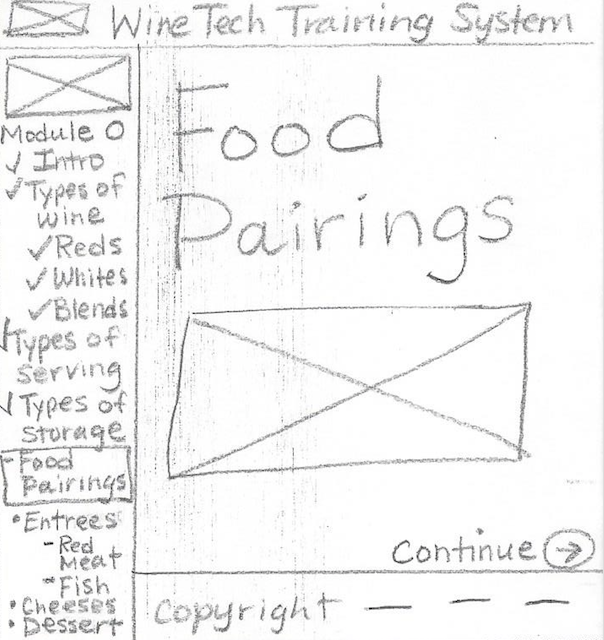 Wine Tech Training System
Module 0
✓ Intro
✓ Types of
wine
✓ Reds
✓ Whites
✓ Blends
✓ Types of
serving
✓ Types of
storage
- Food
Pairings
• Entrees
- Red
Meat
- Fish
• Cheeses
• Dessert
Food
Pairings
Continue →
Copyright — — —